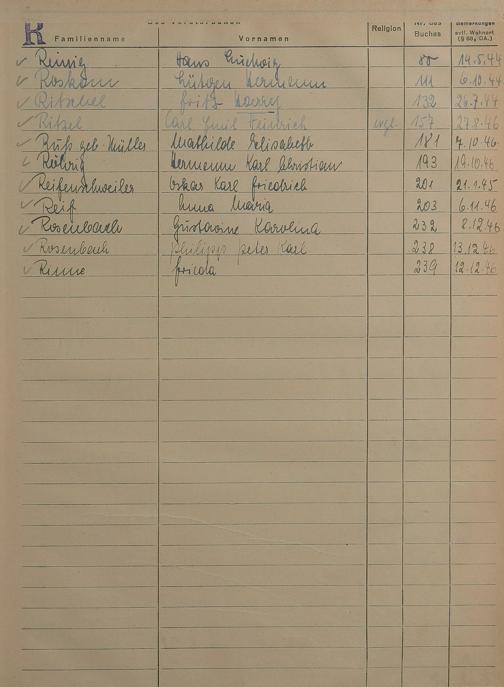 R
Familienname Vornamen Religion Nr. des Buches Bemerkungen evtl. Wohnort (§ 68, DA.)
Reinig Hans Ludwig 80 14.5.44
Roskam Hermann 111 6.10.44
Ritzhel Fritz 132 26.7.44
Ritzel Carl Emil Heinrich evgl. 157 27.8.46
Ruß geb. Müller Mathilde Elisabeth 181 7.10.46
Röhrig Hermann Karl Christian 193 19.10.46
Reifenschweiler Oskar Karl Friedrich 201 21.1.45
Reif Anna Maria 203 6.11.46
Rosenbach Gustavine Karolina 232 8.12.46
Rosenbach Philipp Peter Karl 238 13.12.46
Rinne Frieda 239 12.12.46